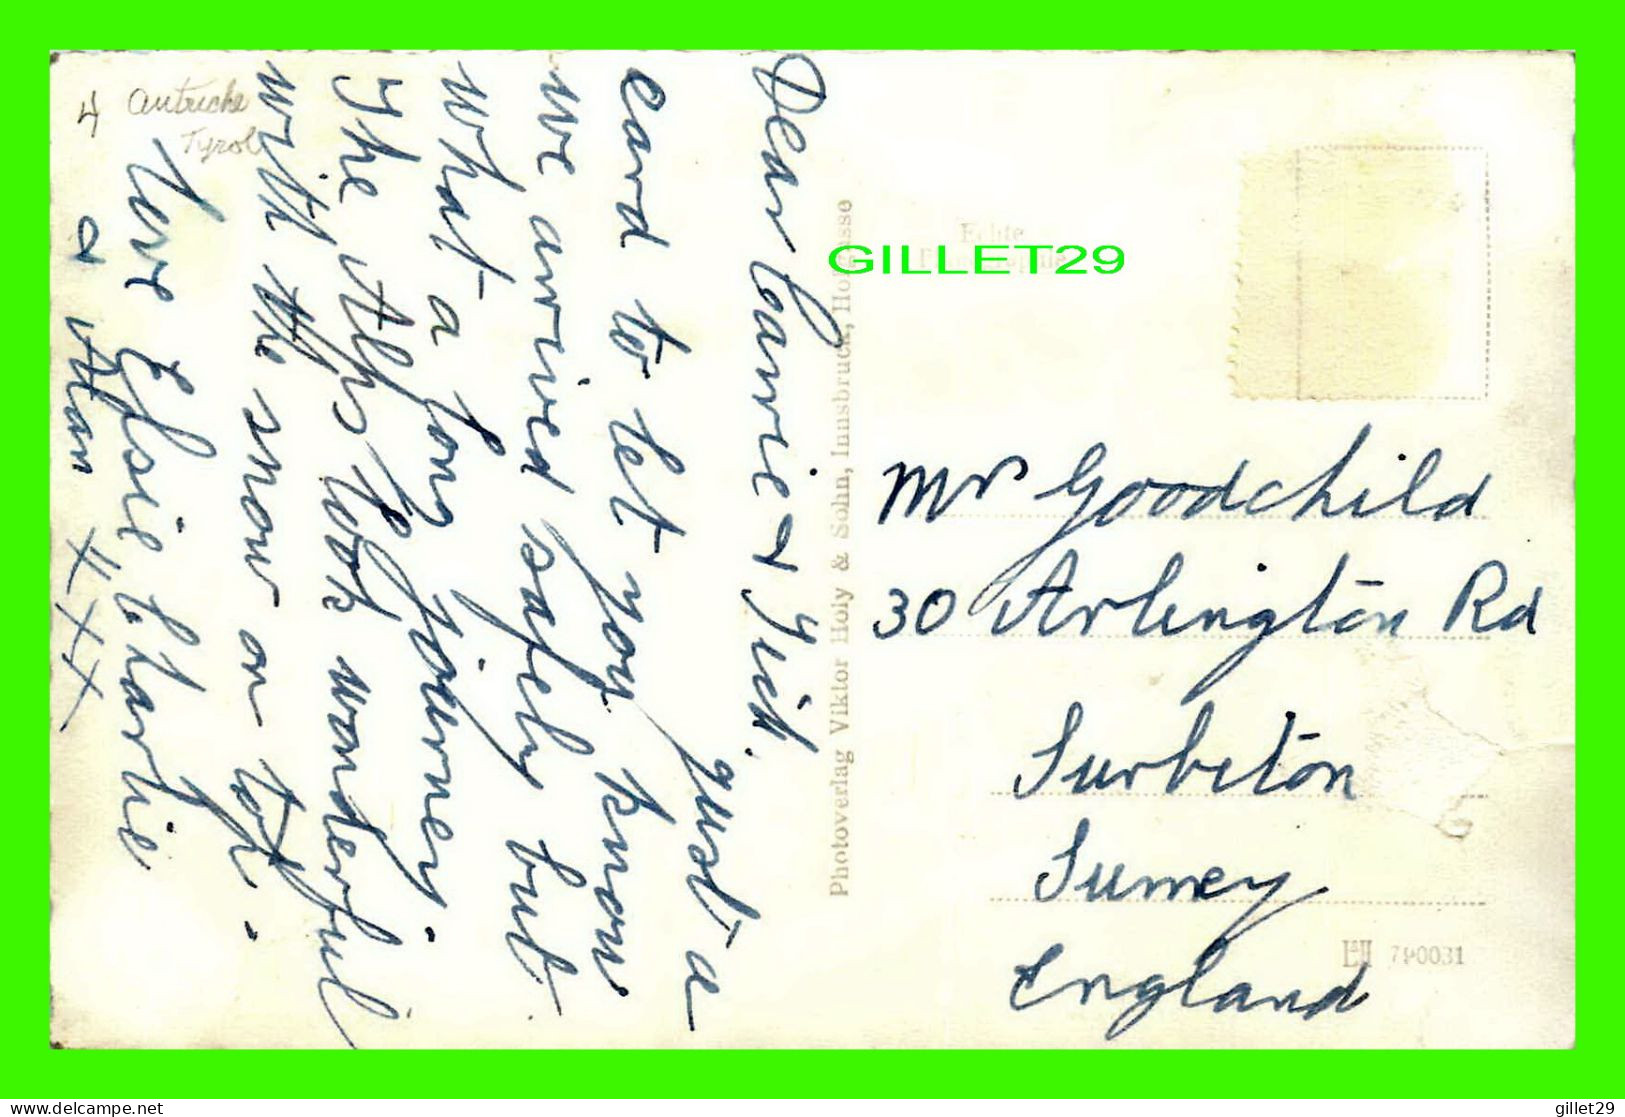 4 autriche
Tyrol
Dear Carrie & Jick.
just a
card to let you know
we arrived safely but
what a long journey.
The Alps look wonderful
with the snow on top.
Love Elsie Charlie
& Alan XXXX
Photoverlag Viktor Holy & Sohn, Innsbruck, Hofgasse
Echte
GILLET29
Mr Goodchild
30 Arlington Rd
Surbiton
Surrey
England
790031
Delcampe.net
gillet29